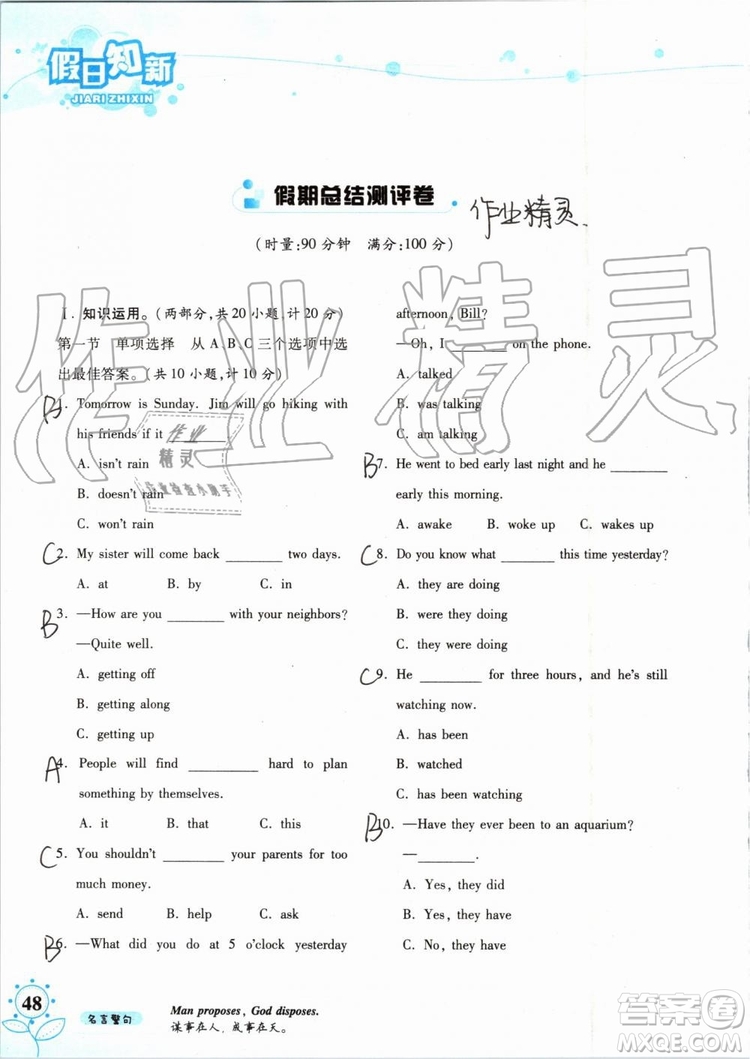 假日知新
JIARI ZHIXIN
假期总结测评卷
作业精灵
(时量:90 分钟 满分:100 分)
Ⅰ. 知识运用。(两部分,共 20 小题,计 20 分)
第一节 单项选择 从 A B C 三个选项中选
出最佳答案。(共 10 小题,计 10 分)
B 1. Tomorrow is Sunday. Jim will go hiking with
his friends if it ________
A. isn't rain
B. doesn't rain
C. won't rain
C 2. My sister will come back ________ two days.
A. at B. by C. in
B 3. —How are you ________ with your neighbors?
—Quite well.
A. getting off
B. getting along
C. getting up
A 4. People will find ________ hard to plan
something by themselves.
A. it B. that C. this
C 5. You shouldn't ________ your parents for too
much money.
A. send B. help C. ask
B 6. —What did you do at 5 o'clock yesterday
afternoon, Bill?
—Oh, I ________ on the phone.
A. talked
B. was talking
C. am talking
B 7. He went to bed early last night and he ________
early this morning.
A. awake B. woke up C. wakes up
C 8. Do you know what ________ this time yesterday?
A. they are doing
B. were they doing
C. they were doing
C 9. He ________ for three hours, and he's still
watching now.
A. has been
B. watched
C. has been watching
B 10. —Have they ever been to an aquarium?
—________.
A. Yes, they did
B. Yes, they have
C. No, they have
48
名言警句
Man proposes, God disposes.
谋事在人,成事在天。
作业精灵
作业精灵
作业检查小助手
答案圈
MXQE.COM